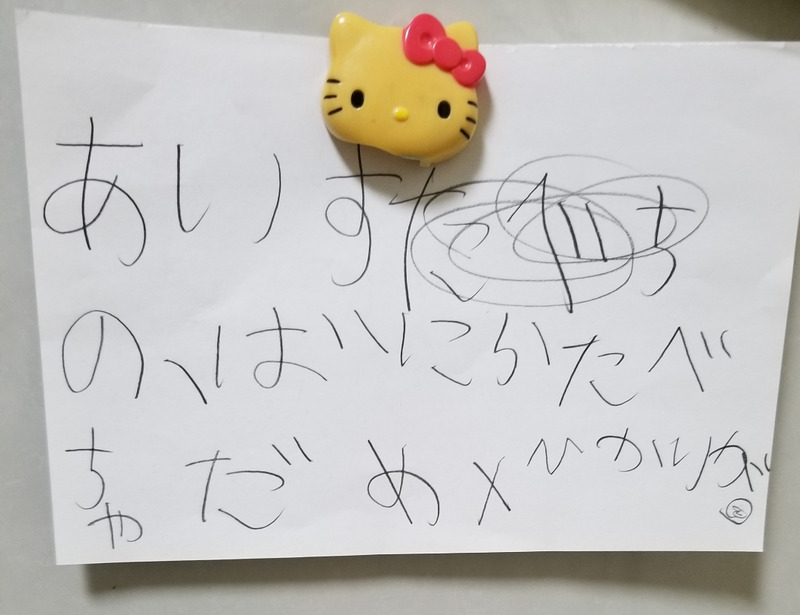 あいす
の、ばにかたべ
ちゃだめ×ひかりが